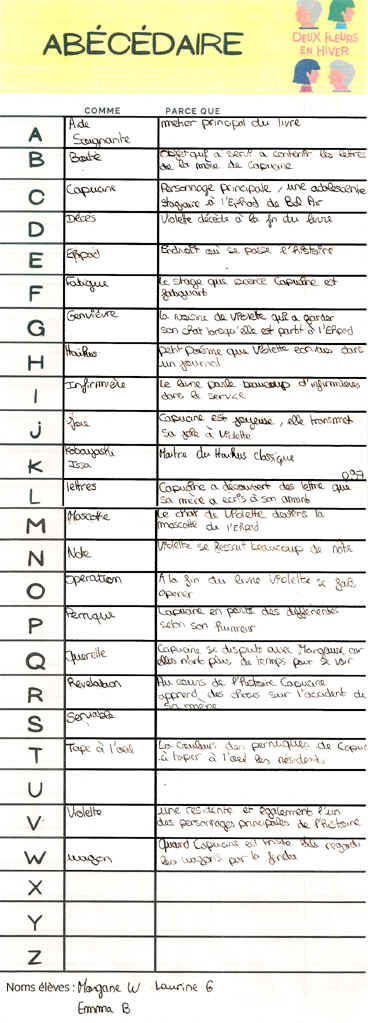 ABÉCÉDAIRE
DEUX FLEURS
EN HIVER
COMME PARCE QUE
A Aide métier principal du livre
Soignante
B Boite Objet qui a servi a contenir les lettres
de la mère de Capucine
C Capucine Personnage principale, une adolescente
stagiaire à l'Ehpad de Bel Air
D Décès Violette décède à la fin du livre
E Ehpad Endroit où se passe l'histoire
F Fatigue Le stage que exerce Capucine est
fatiguant
G Geneviève la voisine de Violette qui a garder
son chat lorsqu'elle est partit à l'Ehpad
H Haïkus petit poème que Violette écrivais dans
un journal
I Infirmière Le livre parle beaucoup d'infirmières
dans le service
J Joie Capucine est joyeuse, elle transmet
sa joie à Violette
K Kobayashi Maitre du Haïkus classique
Issa
L lettres Capucine a découvert des lettre que
sa mère a écris à son amant
M Mascotte Le chat de Violette devient la
mascotte de l'Ehpad
N Note Violette se faisait beaucoup de note
O Opération A la fin du livre Violette se fait
opérer
P Perruque Capucine en porte des différentes
selon son humeur
Q Querelle Capucine se dispute avec Margause car
elles n'ont plus de temps pour se voir
R Révélation Au cours de l'histoire Capucine
apprend des choses sur l'accident de
sa mère
S Serviable
T Tape à l'oeil La couleur des perruques de Capuc
à taper à l'oeil les résidents
U
V Violette une résidente et également l'un
des personnages principales de l'histoire
W wagon Quand Capucine est triste elle regarde
les wagons par la fenêtre
X
Y
Z
Noms élèves : Morgane W Laurine G
Emma B